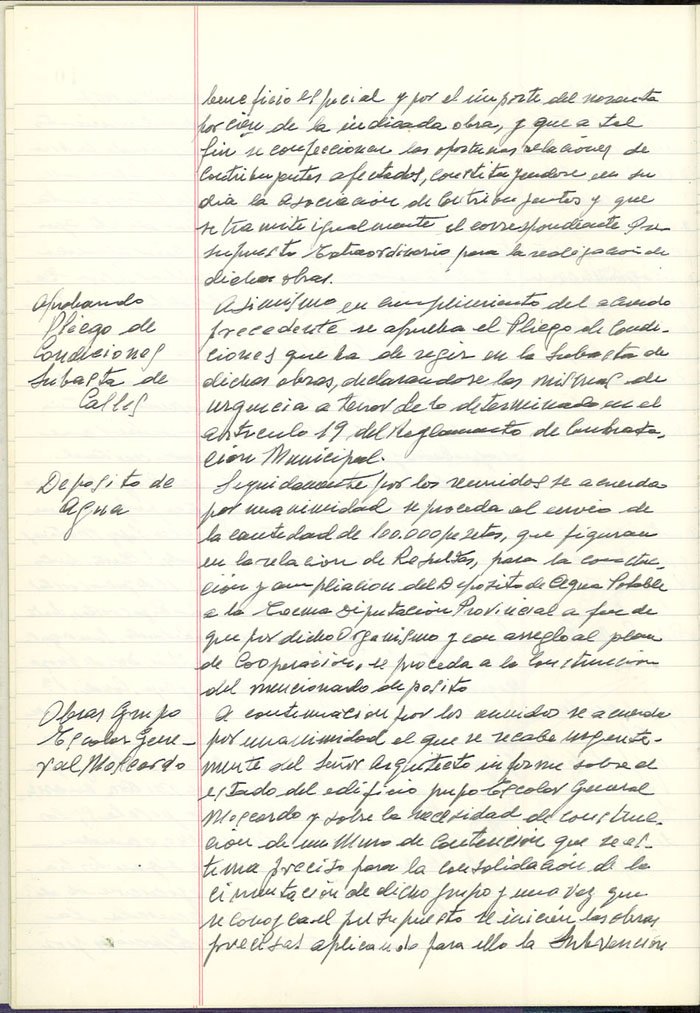 beneficio especial y por el importe del noventa
por cien de la indicada obra, y que a tal
fin se confeccionen las oportunas relaciones de
Contribuyentes afectados, constituyendose en su
dia la Asociacion de Contribuyentes y que
se tramite igualmente el correspondiente Pre-
supuesto Extraordinario para la realizacion de
dichas obras.
Aprobando
Pliego de
Condiciones
Subasta de
Calles
Asimismo en cumplimiento del acuerdo
precedente se aprueba el Pliego de Condi-
ciones que ha de regir en la Subasta de
dichas obras, declarandose las mismas de
urgencia a tenor de lo determinado en el
articulo 19 del Reglamento de Contrata-
cion Municipal.
Deposito de
Agua
Seguidamente por los reunidos se acuerda
por unanimidad se proceda al envio de
la cantidad de 100.000 pesetas, que figuran
en la relacion de Resultas, para la construc-
ción y ampliacion del Deposito de Agua Potable
a la Excma Diputación Provincial a fin de
que por dicho Organismo y con arreglo al plan
de Cooperación, se proceda a la Construccion
del mencionado deposito
Obras Grupo
Escolar Gene-
ral Moscardo
A continuacion por los reunidos se acuerda
por unanimidad el que se recabe urgente-
mente del Señor Arquitecto informe sobre el
estado del edificio grupo Escolar General
Moscardo y sobre la necesidad de construc-
ción de un Muro de Contención que se es-
tima preciso para la consolidación de la
cimentación de dicho grupo y una vez que
se conozca el presupuesto se inicien las obras
precisas aplicando para ello la Subvención